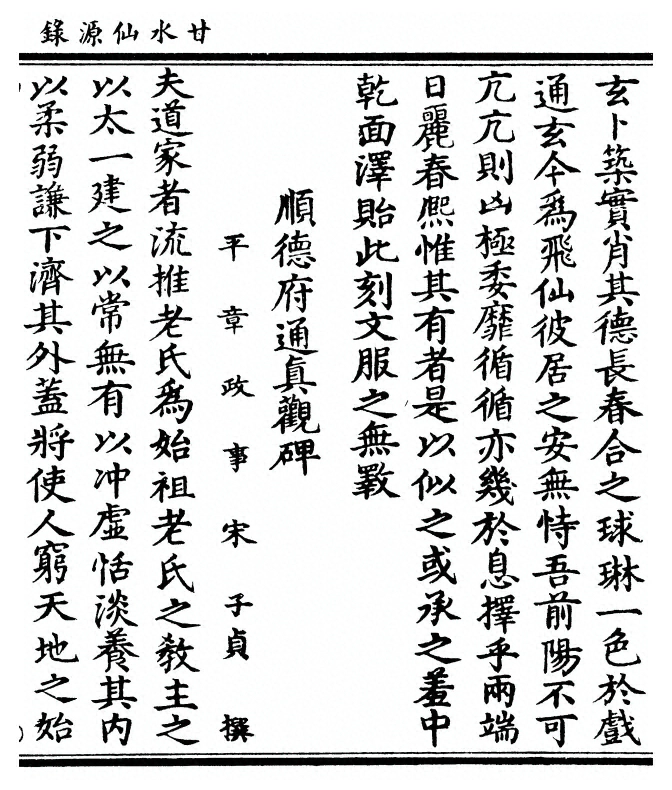 甘水仙源錄
玄卜築實肖其德長春合之球琳一色於戲
通玄今爲飛仙彼居之安無恃吾前陽不可
亢亢則凶極委靡循循亦幾於息擇乎兩端
日麗春熈惟其有者是以似之或承之羞中
乾面澤貽此刻文服之無斁
順德府通眞觀碑
平章政事宋子貞撰
夫道家者流推老氏爲始祖老氏之敎主之
以太一建之以常無有以冲虛恬淡養其內
以柔弱謙下濟其外蓋將使人窮天地之始